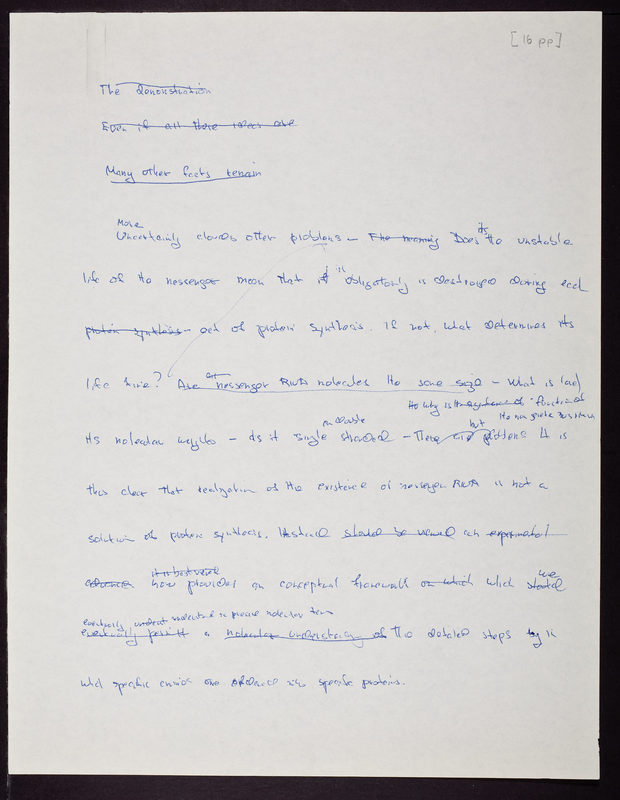 [16 pp]
The demonstration
Even if all these ideas are
Many other facts remain
More
Uncertainly clouds other problems — The meaning Does its the unstable
life of the messenger mean that it is obligatorily is destroyed during each
protein synthesis - act of protein synthesis. If not, what determines its
life time? Are all messenger RNA molecules the same size — What is
its molecular weights — is it single stranded — There are problems It is
thus clear that realization of the existence of messenger RNA is not a
solution of protein synthesis. Instead should be viewed an experimental
advance it is best viewed how provides an conceptual framework on which which we should
eventually understand in precise molecular terms
eventually permit a molecular understanding of the detailed steps by
which specific amino are ordered into specific proteins.